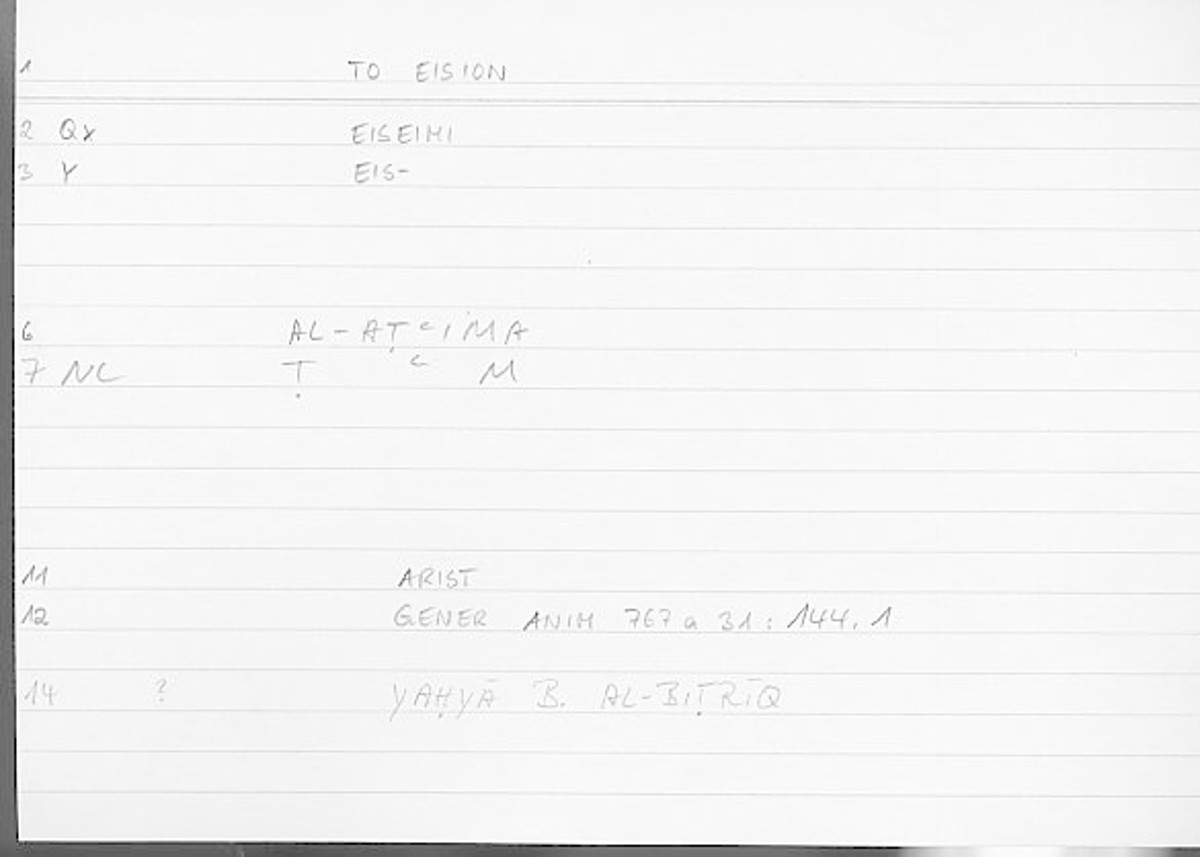 1 TO EISION
2 Qx EISEIMI
3 Y EIS-
6 AL-AṬʿIMA
7 NC Ṭ ʿ M
11 ARIST
12 GENER ANIM 767 a 31 : 144, 1
14 ? YAḤYĀ B. AL-BIṬRĪQ